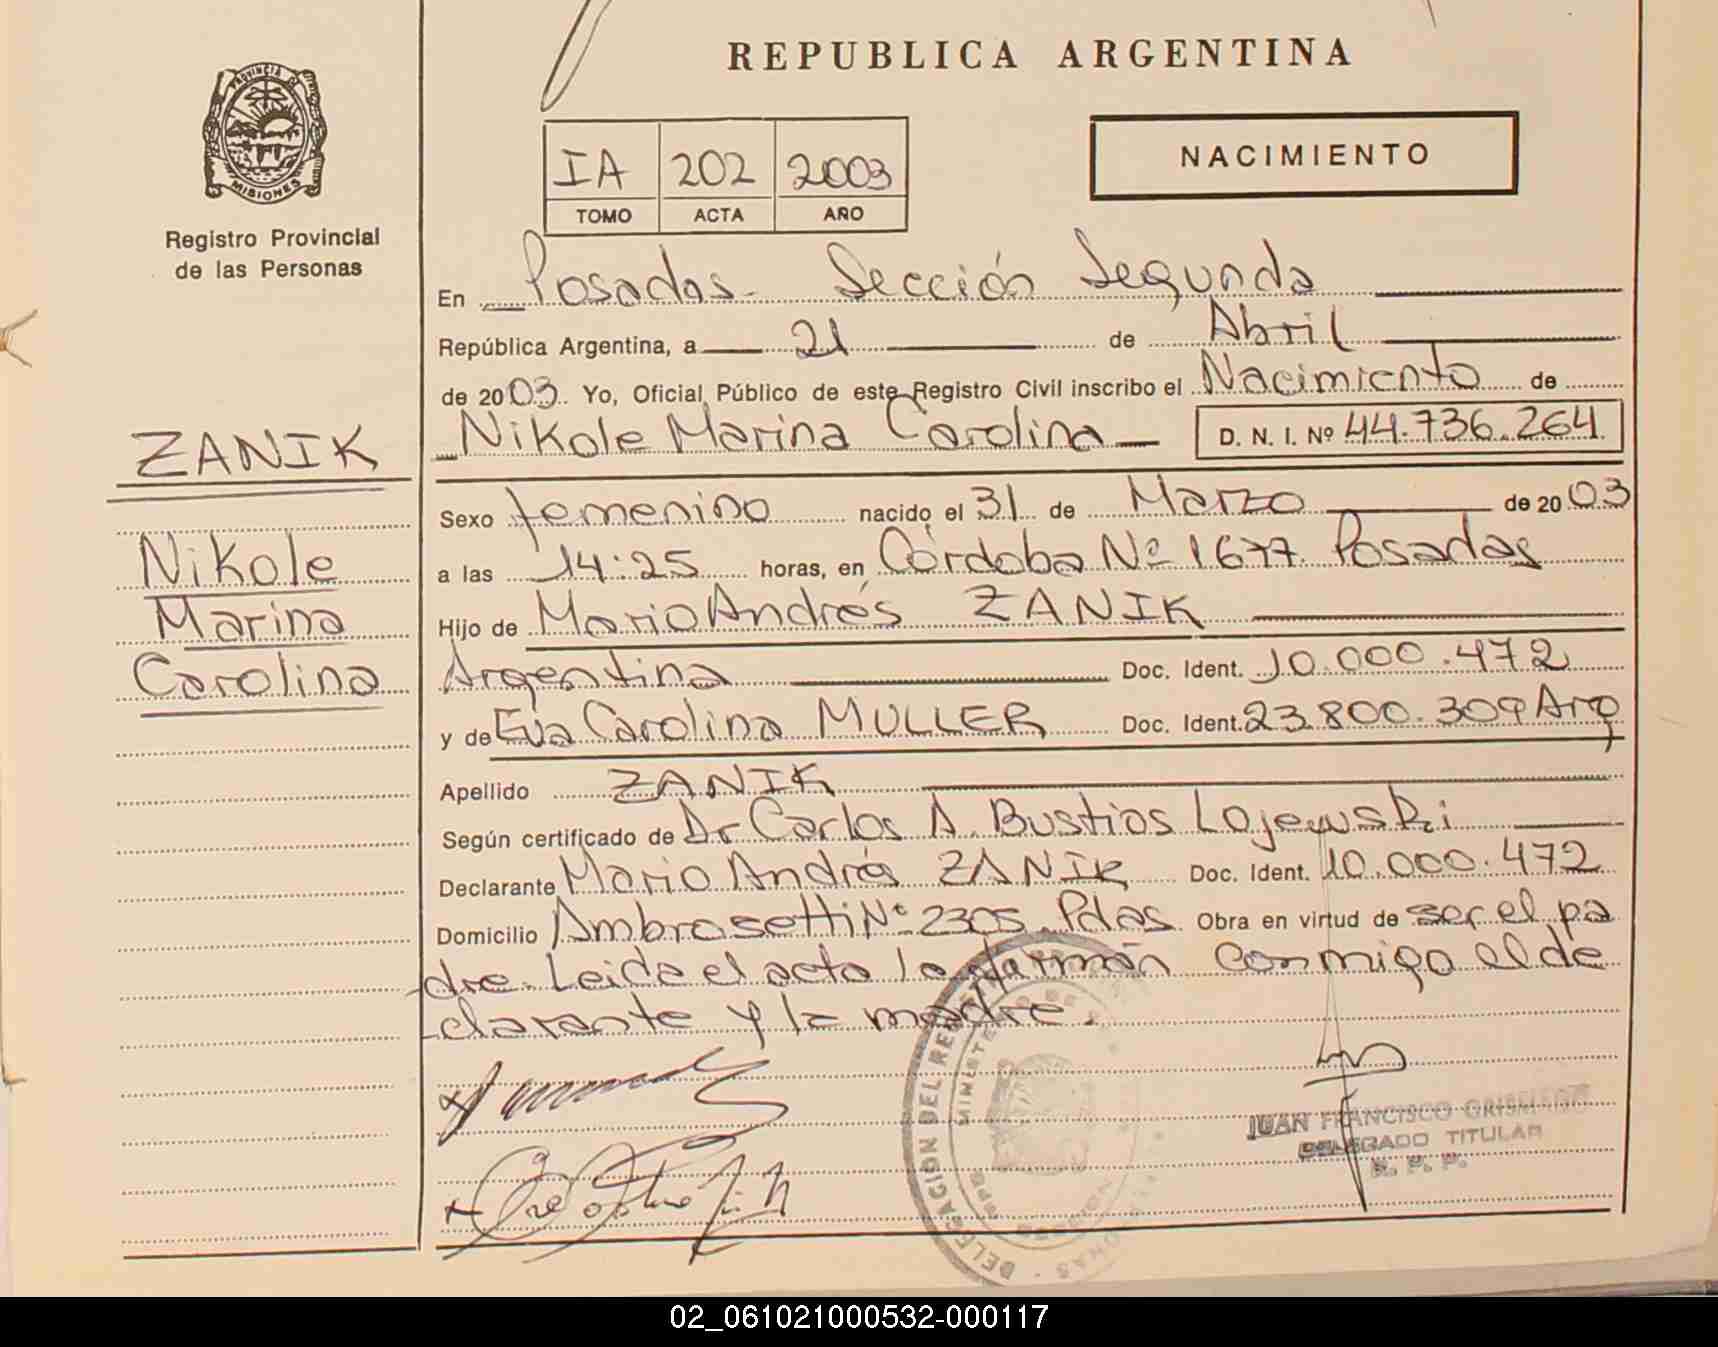 REPUBLICA ARGENTINA
PROVINCIA DE
MISIONES
Registro Provincial
de las Personas
IA 202 2003
TOMO ACTA AÑO
NACIMIENTO
En Posadas- Sección Segunda
República Argentina, a 21 de Abril
de 2003. Yo, Oficial Público de este Registro Civil inscribo el Nacimiento de
Nikole Marina Carolina D. N. I. Nº 44.736.264
ZANIK
Nikole
Marina
Carolina
Sexo femenino nacido el 31 de Marzo de 2003
a las 14:25 horas, en Córdoba Nº 1677. Posadas
Hijo de Mario Andrés ZANIK
Argentina Doc. Ident. 10.000.472
y de Eva Carolina MULLER Doc. Ident. 23.800.309 Arg
Apellido ZANIK
Según certificado de Dr Carlos A. Bustios Lojewski
Declarante Mario Andrés ZANIK Doc. Ident. 10.000.472
Domicilio Ambrosetti Nº 2305. Pdas. Obra en virtud de ser el pa
dre. Leida el acta la firmán conmigo el de
clarante y la madre.
DELEGACION DEL
MINISTERIO DE
JUAN FRANCISCO
DELEGADO TITULAR
R. P. P.
02_061021000532-000117